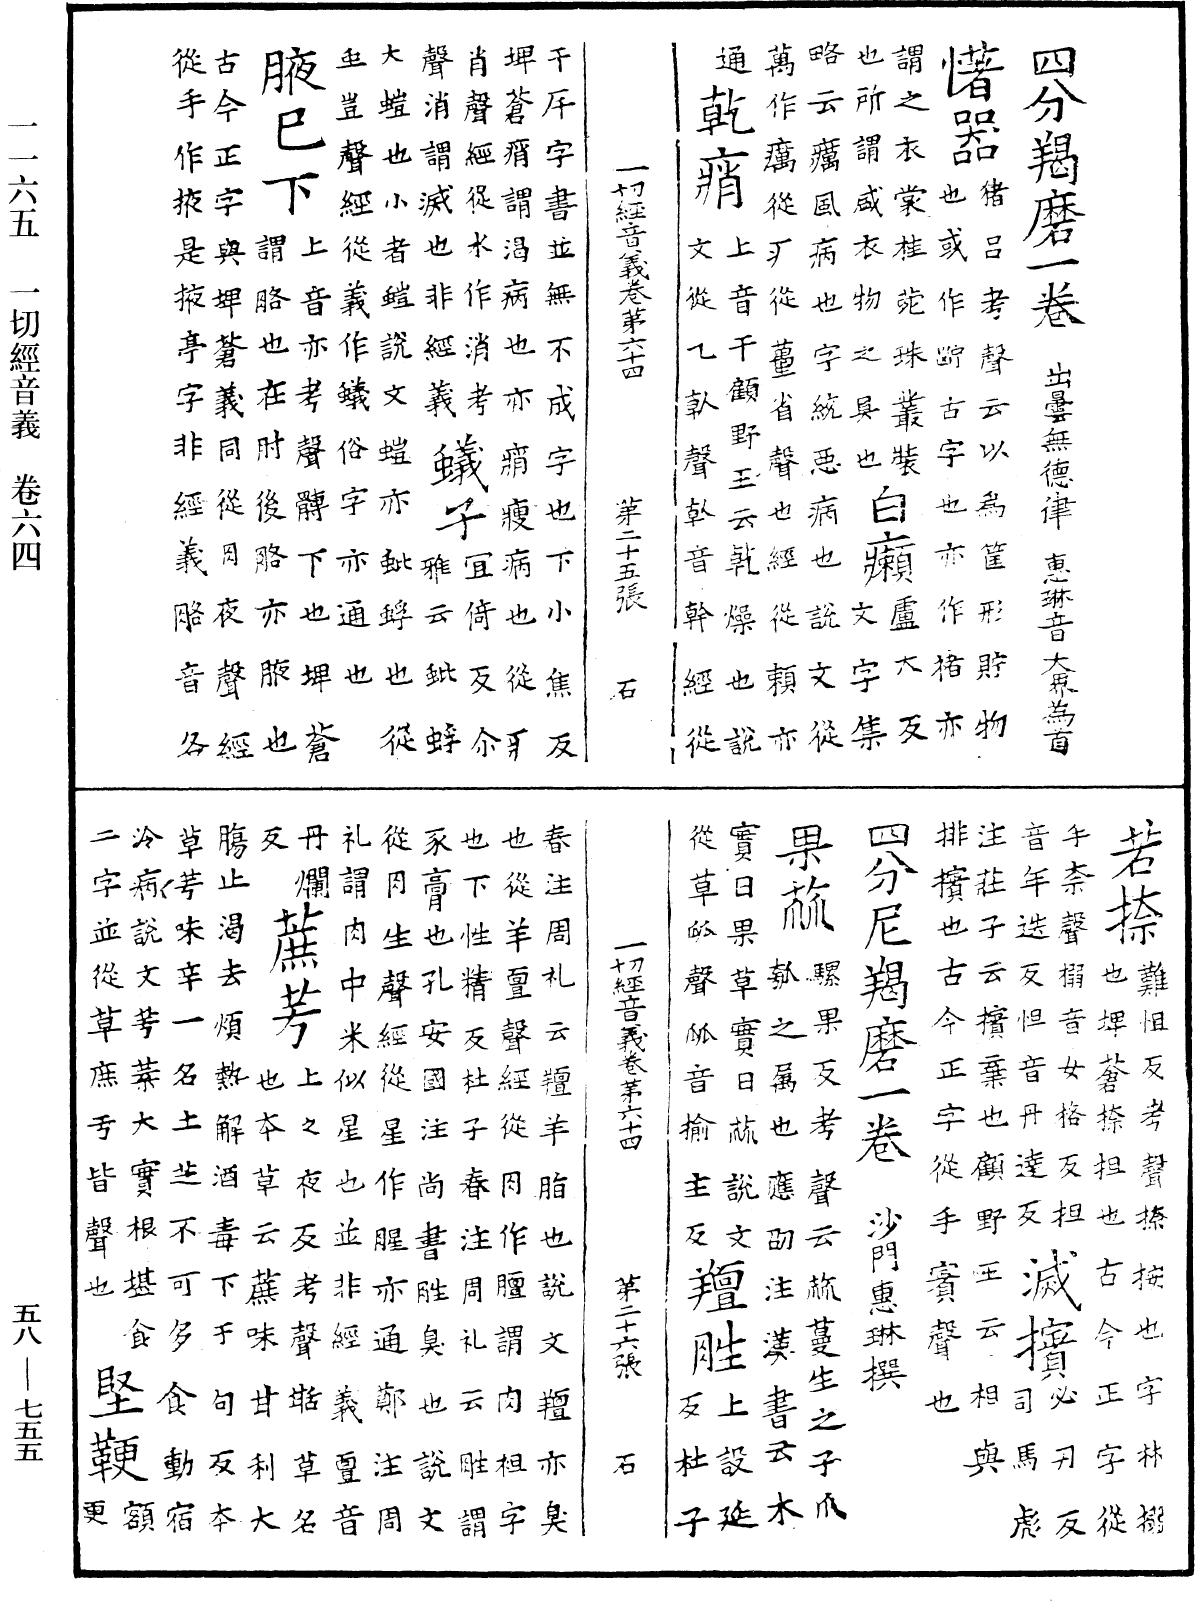 四分羯磨一卷 出曇無德律 惠琳音 大界為首
㡏器 猪呂考聲云以為筐形貯物
也或作䇡古字也亦作褚亦
謂之衣裳桂苑珠叢裝
也所謂盛衣物之具也 白癩 盧大反
文字集
略云癘風病也字統惡病也說文從
萬作癘從疒從蠆省聲也經從賴亦
通 乾痟 上音干顧野王云乾燥也說
文從乙倝聲倝音幹經從
一切經音義卷第六十四 第二十五張 石
干斥字書並無不成字也下小焦反
埤蒼痟謂渴病也亦痟瘦病也從疒
肖聲經從水作消考
聲消謂滅也非經義 蟻子 宜倚反尒
雅云蚍蜉
大螘也小者螘說文螘亦蚍蜉也從
虫豈聲經從義作蟻俗字亦通也
腋已下 上音亦考聲髆下也埤蒼
謂胳也在肘後胳亦腋也
古今正字與埤蒼義同從月夜聲經
從手作掖是掖亭字非經義胳音各
若捺 難怛反考聲捺按也字林搦
也埤蒼捺担也古今正字從
手奈聲搦音女格反担
音年迭反怛音丹達反 滅擯 必刃反
司馬彪
注莊子云擯棄也顧野王云相與
排擯也古今正字從手賓聲也
四分尼羯磨一卷 沙門惠琳撰
果蓏 騾果反考聲云蓏蔓生之子瓜
瓠之属也應劭注漢書云木
實曰果草實曰蓏說文
從草㼌聲㼌音揄主反 羶胜 上設延
反杜子
春注周礼云羶羊脂也說文羶亦臭
也從羊亶聲經從月作膻謂肉袒字
也下性精反杜子春注周礼云胜謂
豕膏也孔安國注尚書胜臭也說文
從月生聲經從星作腥亦通鄭注周
礼謂肉中米似星也並非經義亶音
丹爛反 蔗芋 上之夜反考聲甛草名
也本草云蔗味甘利大
腸止渴去煩熱解酒毒下于句反本
草芋味辛一名土芝不可多食動宿
冷病說文芋葉大實根堪食
二字並從草庶亐皆聲也 堅鞕 額
更
一切經音義卷第六十四 第二十六張 石
一一六五 一切經音義 卷六四
五八—七五五